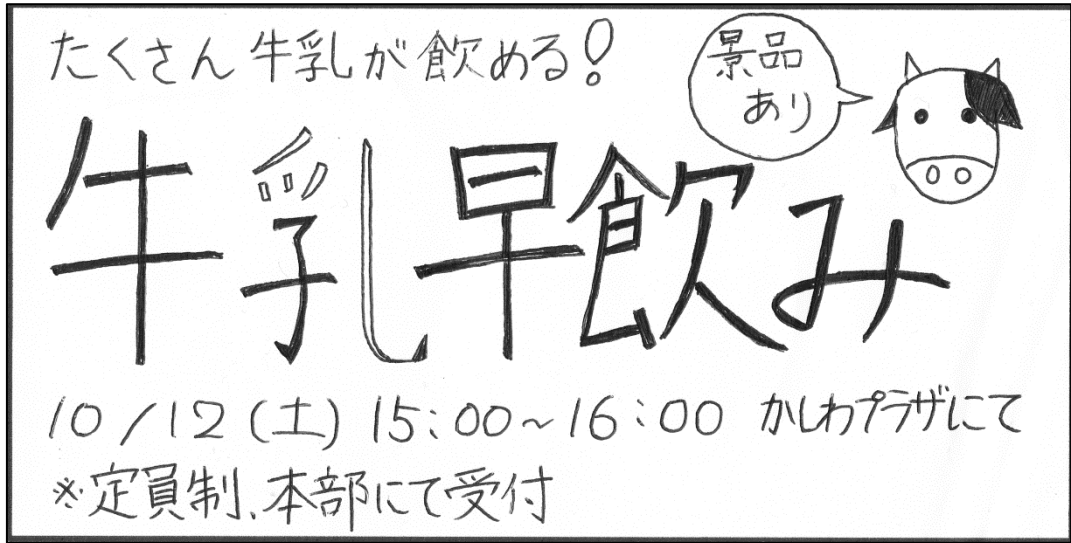 たくさん牛乳が飲める!
景品
あり
牛乳早飲み
10/12(土) 15:00~16:00 かしわプラザにて
※定員制、本部にて受付